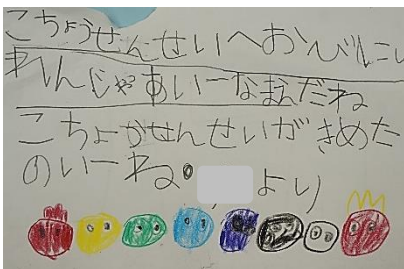 こちょうせんせいへおんびにい
れんじゃあいーなまえだね
こちょかせんせいがきめた
のいーね。
より